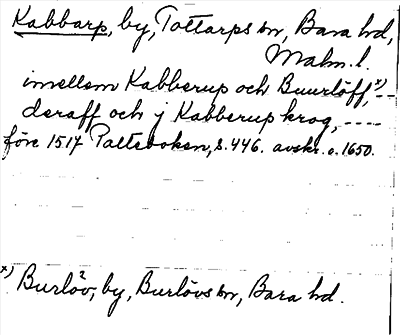 Kabbarp, by, Tottarps sn, Bara hd,
Malm. l.
imellem Kabberup och Buurlöff,x) --
deraff och j Kabberup krog, ----
före 1517 Palteboken, s. 446. avskr. o. 1650.
x) Burlöv, by, Burlövs sn, Bara hd.